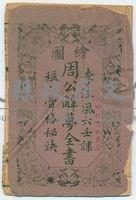 繪圖
李淳風六壬課
周公解夢全書
骨格秘訣